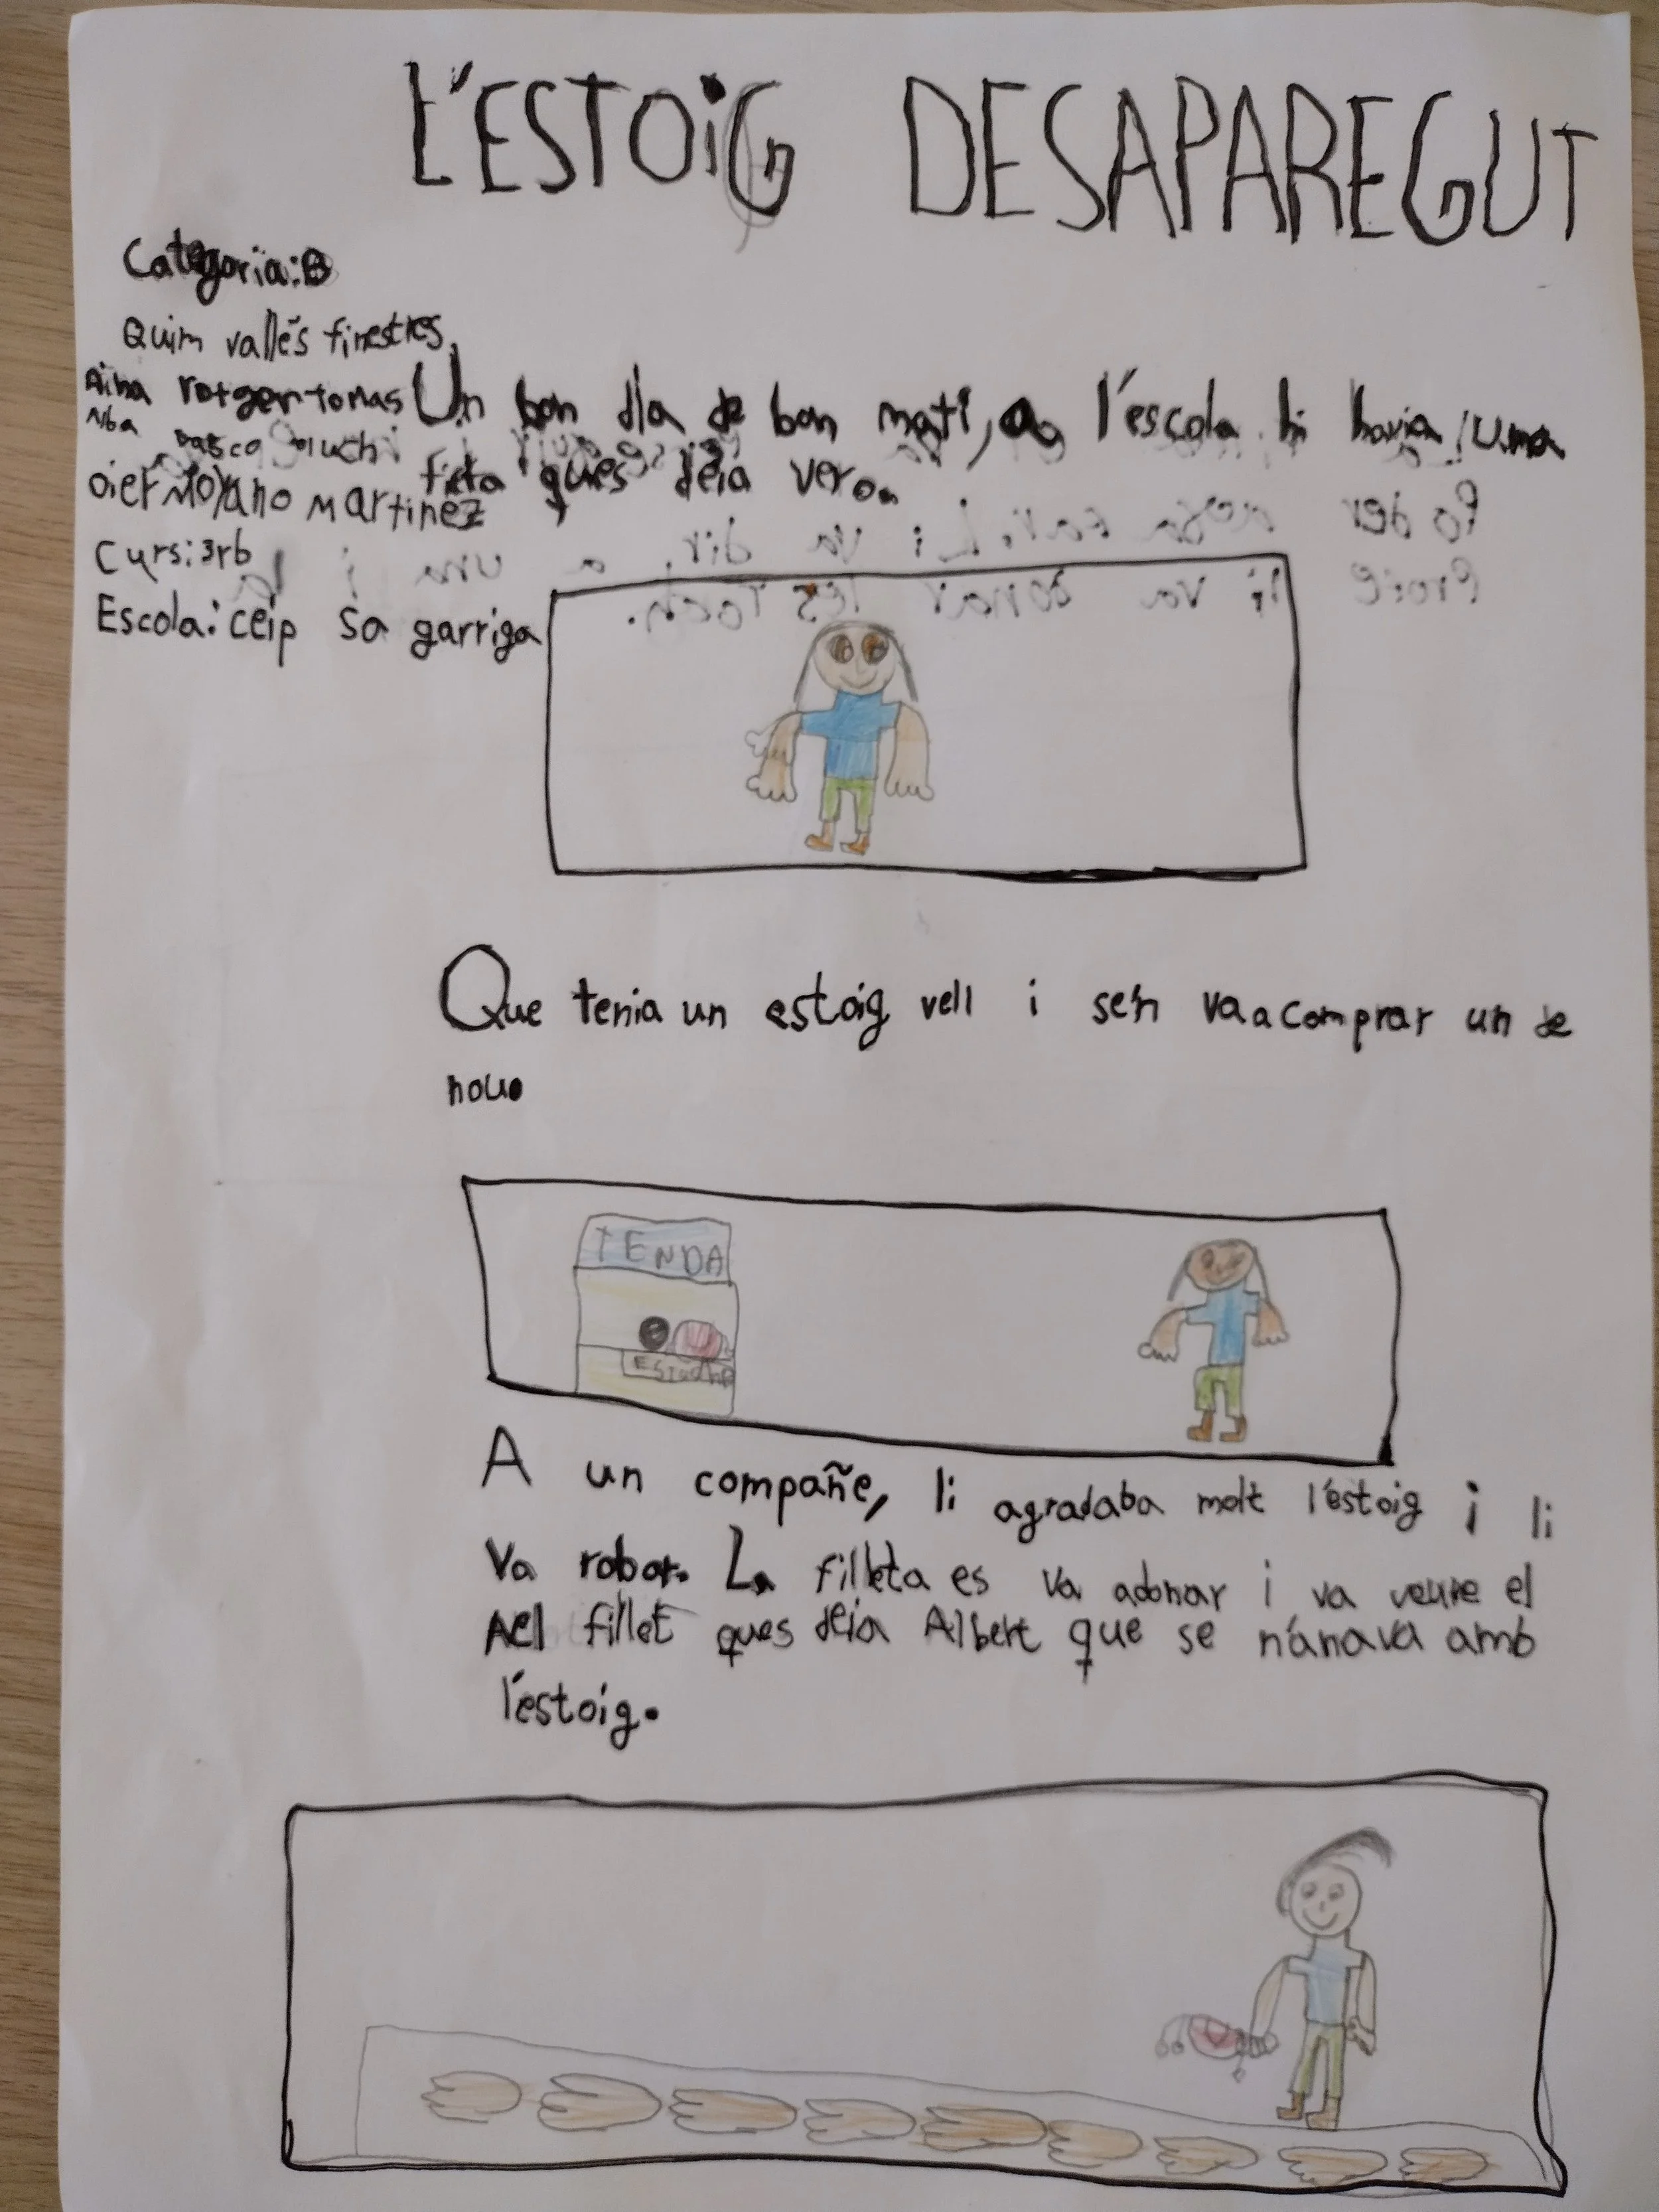 L'ESTOiG DESAPAREGUT
Categoria:B
Quim vallés finestres
Un bon dia de bon mati, a l'escola hi havia una
rotger tomas
Alba
oier Moyano Martinez
ques deia vero.
Curs:3rb
Escola:ceip sa garriga
Que tenia un estoig vell i se'n va a comprar un de
nou.
TENDA
A un compañe, li agradaba molt l'estoig i li
va robar. La filleta es va adonar i va veure el
Ael fillet ques deia Albert que se n'anava amb
l'estoig.